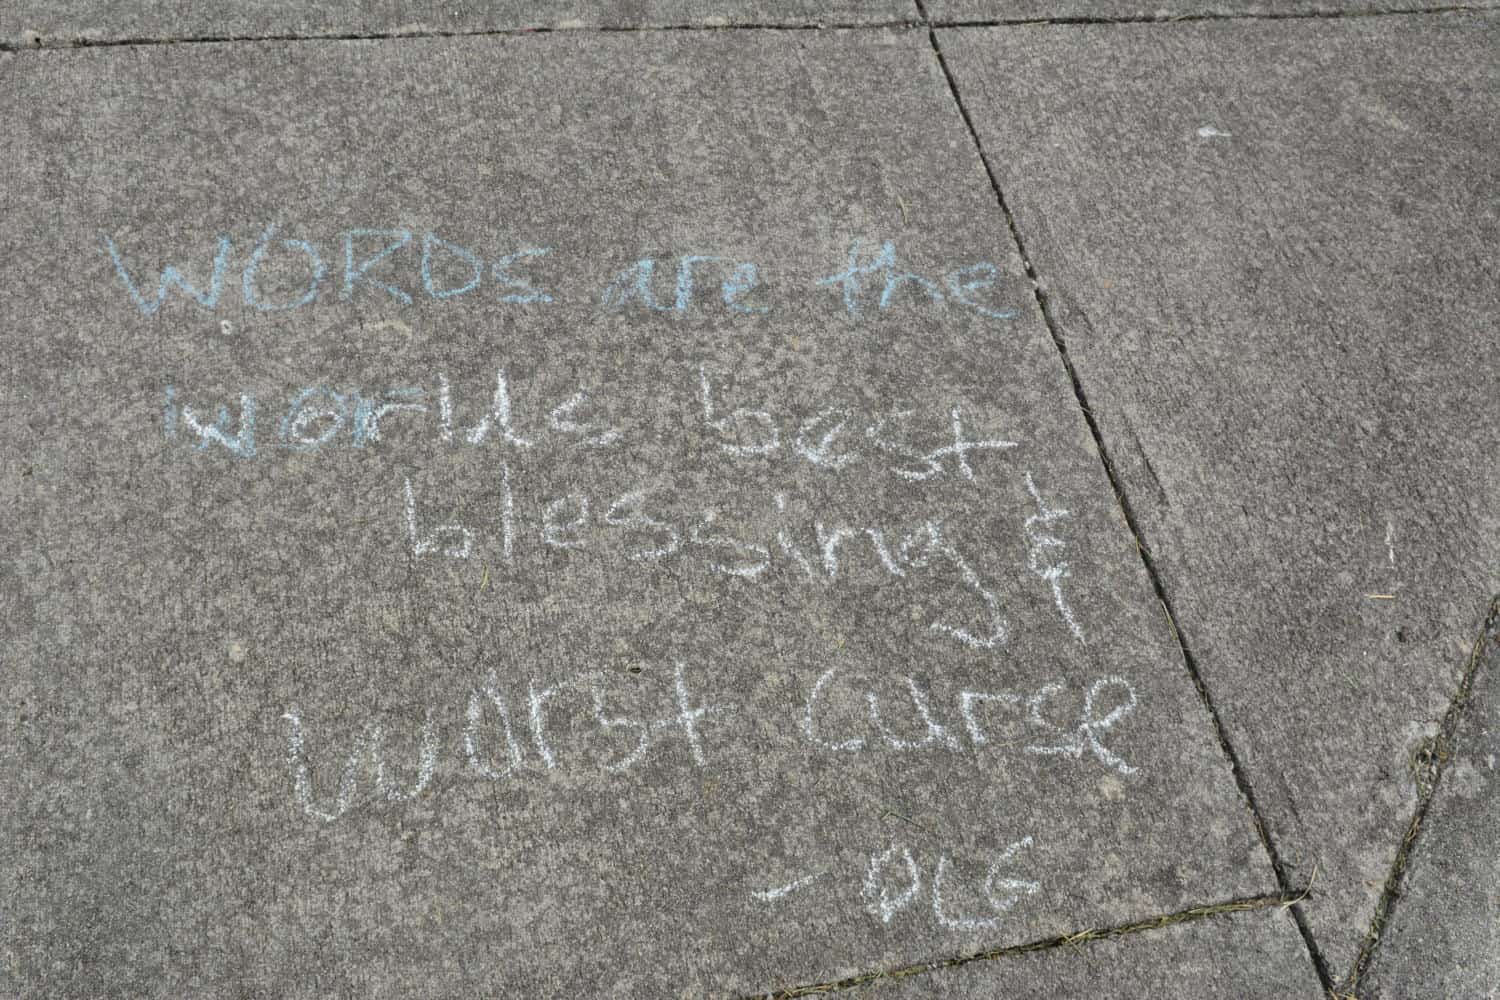 WORDS are the
worlds best
blessing &
worst curse
- DLG